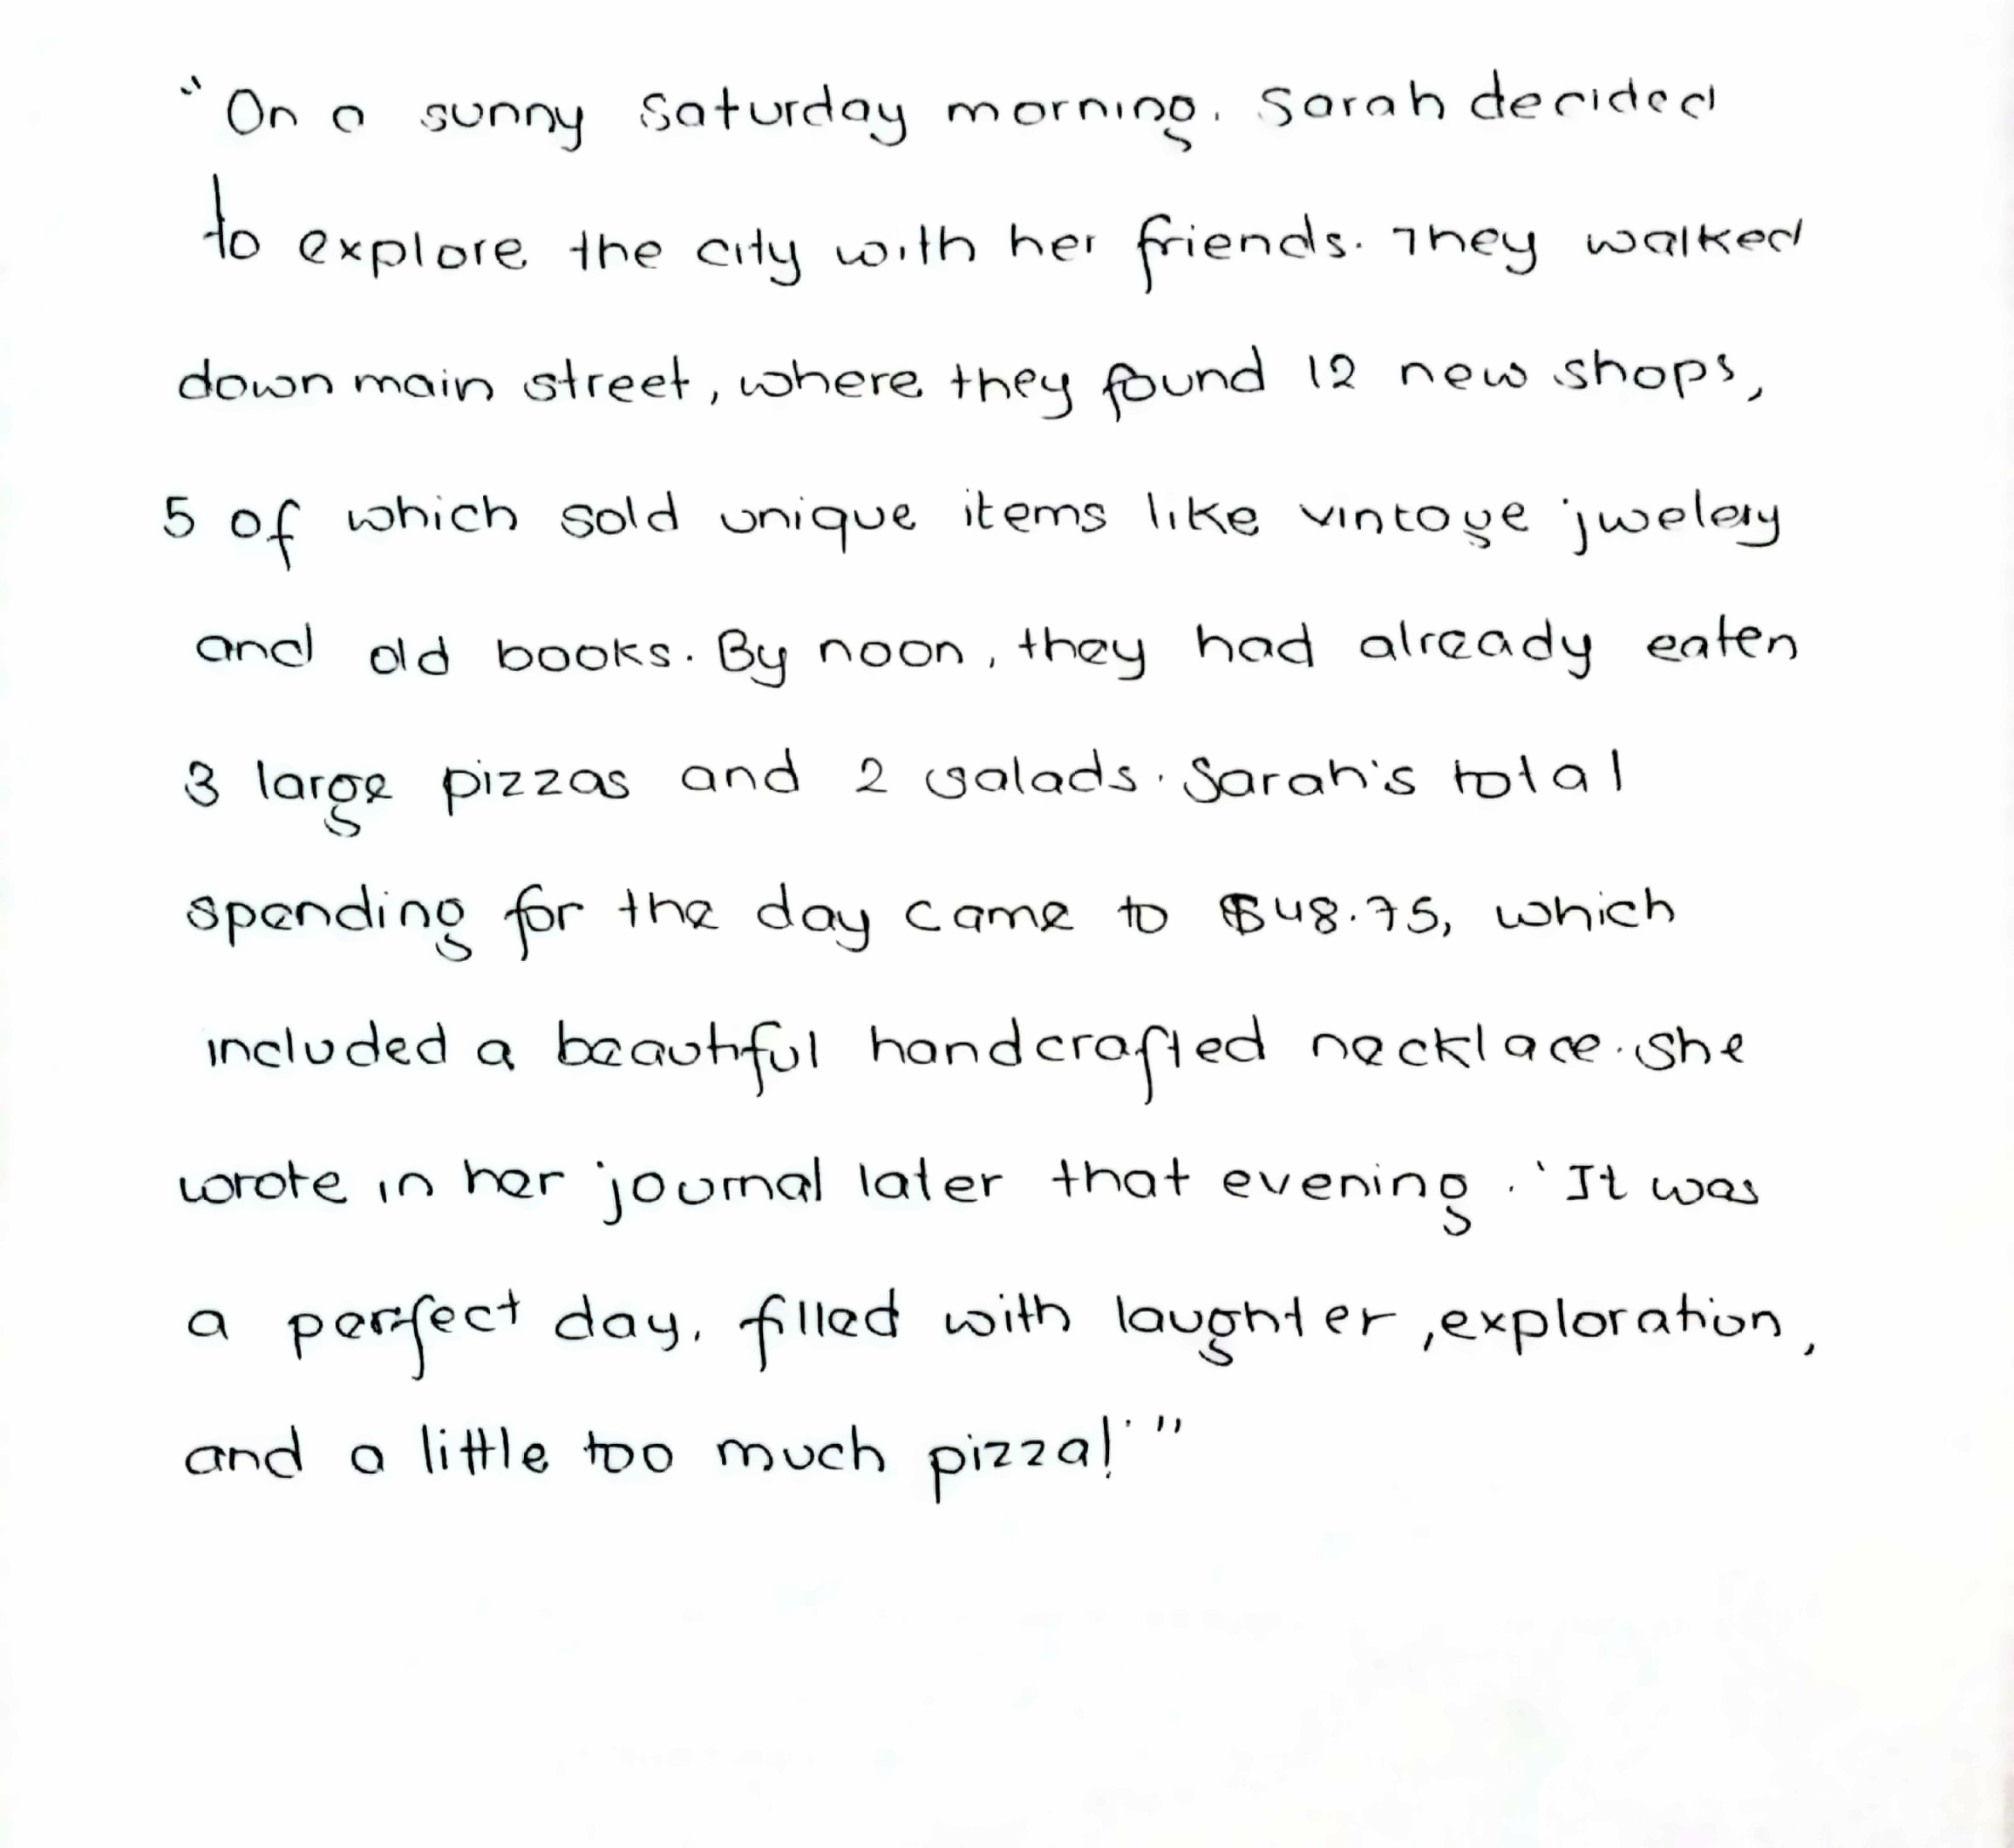 "On a sunny Saturday morning, Sarah decided
to explore the city with her friends. They walked
down main street, where they found 12 new shops,
5 of which sold unique items like vintage jwelery
and old books. By noon, they had already eaten
3 large pizzas and 2 salads. Sarah's total
spending for the day came to $48.75, which
included a beautiful handcrafted necklace. She
wrote in her journal later that evening. 'It was
a perfect day, filled with laughter, exploration,
and a little too much pizza!'"